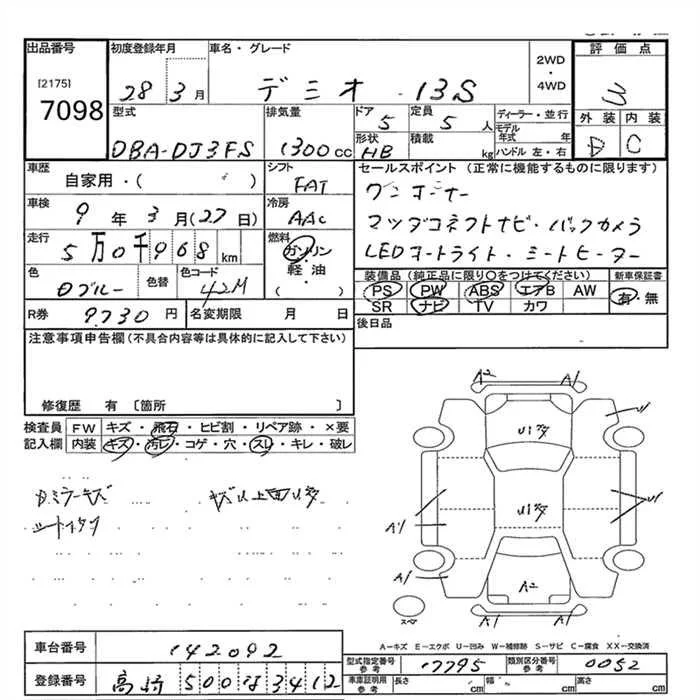 出品番号
[2175]
7098
初度登録年月
28 3月
車名・グレード
デミオ 13S
2WD
・
4WD
評価点
3
外装 内装
D C
型式
DBA-DJ3FS
排気量
1300cc
ドア
5
定員
5人
形状
HB
積載
kg
ディーラー・並行
モデル年式 年
ハンドル 左・右
車歴
自家用・( )
シフト
FAT
セールスポイント (正常に機能するものに限ります)
ワンオーナー
マツダコネクトナビ・バックカメラ
LEDオートライト・シートヒーター
車検
9年3月(27日)
冷房
AAC
走行
5万0千968km
燃料
ガソリン
・
軽・油
( )
色
Dブルー
色替
色コード
42M
装備品 (純正品に限り○をつけてください)
PS PW ABS エアB AW
SR ナビ TV カワ
新車保証書
有・無
R券
9730円
名変期限
月 日
後日品
注意事項申告欄(不具合内容等は具体的に記入して下さい)
修復歴 有 〔箇所 〕
検査員
記入欄
FW キズ・飛石・ヒビ割・リペア跡・×要
内装 キズ・汚レ・コゲ・穴・スレ・キレ・破レ
シートイタン
A2 A1
U1
U1
A1
U1
A1
A2
A1 A1
スペア
A-キズ E-エクボ U-凹み W-補修跡 S-サビ C-腐食 XX-交換済
車台番号
142092
登録番号
高崎 500 な 3412
型式指定番号
参考
17795
類別区分番号
参考
0052
車庫証明用
参考
長さ cm
幅 cm
高さ cm